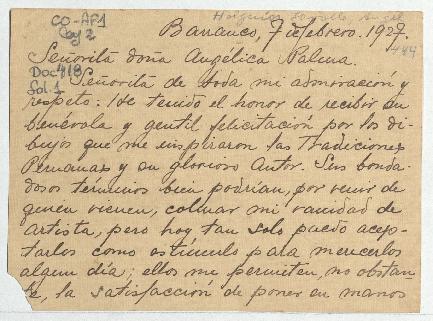 CO-AF1
Caj 2
Doc 418
Sol. 1
444
Barranco, 7 de febrero. 1927.
Señorita doña Angélica Palma.
Señorita de toda mi admiración y
respeto: He tenido el honor de recibir su
benévola y gentil felicitación por los di-
bujos que me inspiraron las Tradiciones
Peruanas y su glorioso Autor. Sus bonda-
dosos terminos bien podrían, por venir de
quien vienen, colmar mi vanidad de
artista, pero hoy tan solo puedo acep-
tarlos como estímulo para merecerlos
algun día; ellos me permiten, no obstan-
te, la satisfacción de poner en manos